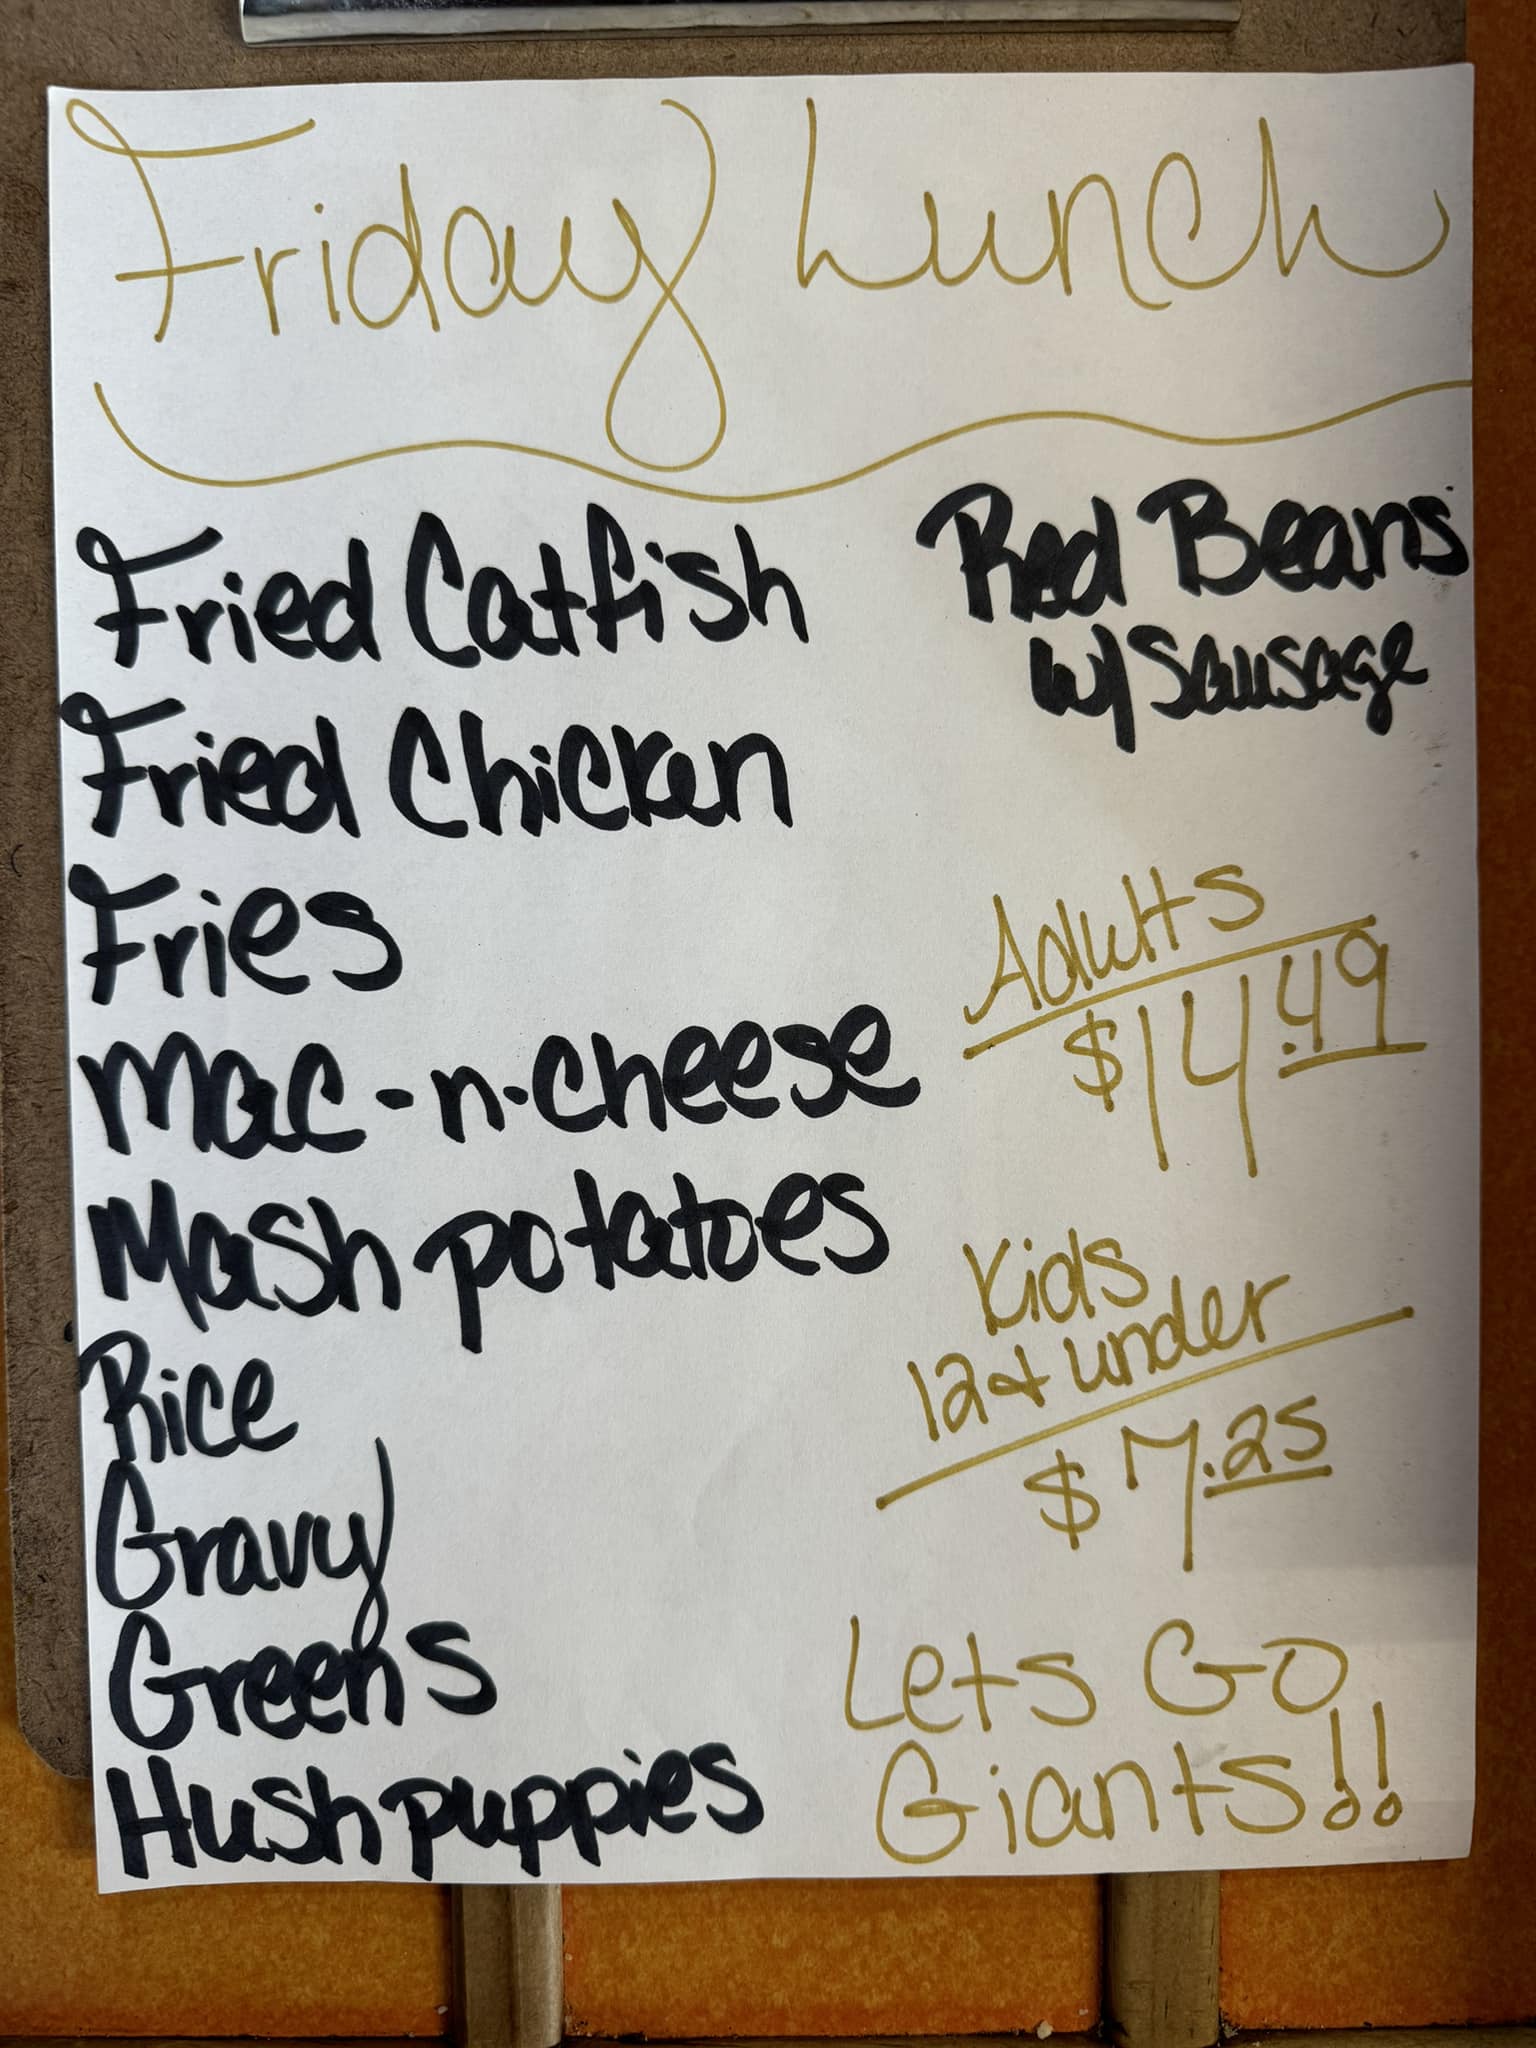 Friday Lunch
Fried Catfish
Fried Chicken
Fries
Mac-n-cheese
Mash potatoes
Rice
Gravy
Greens
Hushpuppies
Red Beans
w/ Sausage
Adults
$14.49
Kids
12 & under
$7.25
Lets Go
Giants!!